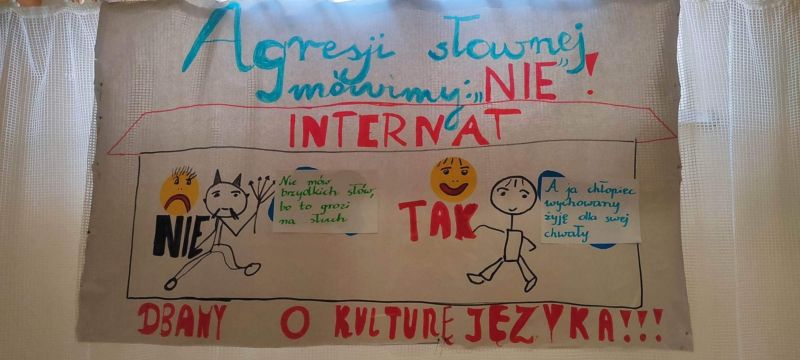 Agresji słownej
mówimy: „NIE”!
INTERNAT
NIE
Nie mów
brzydkich słów,
bo to grozi
na słuch
TAK
A ja chłopiec
wychowany
żyję dla swej
chwały
DBAMY O KULTURĘ JĘZYKA!!!